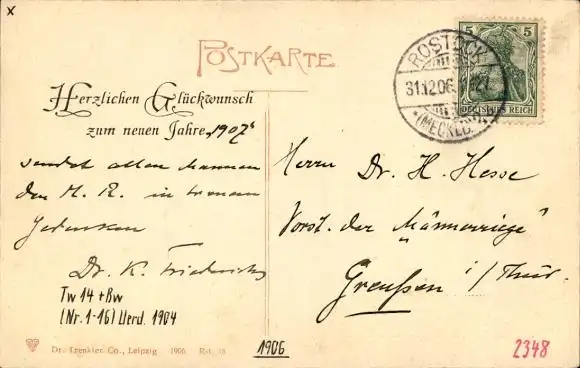 x
POSTKARTE
5 5
DEUTSCHES REICH
ROSTOCK
31.12.06.
* (MECKLB.)
Herzlichen Glückwunsch
zum neuen Jahre „1907“
sendet allen Mannen
der M. R. in treuem
Gedenken
Dr. K. Friederichs
Herrn Dr. H. Hesse
Vorst. der „Männerriege“
Greußen i/Thür.
Tw 14 + Bw
(Nr. 1-16) Verd. 1904
Dr. Trenkler Co., Leipzig 1906 Rst. 18
1906
2348